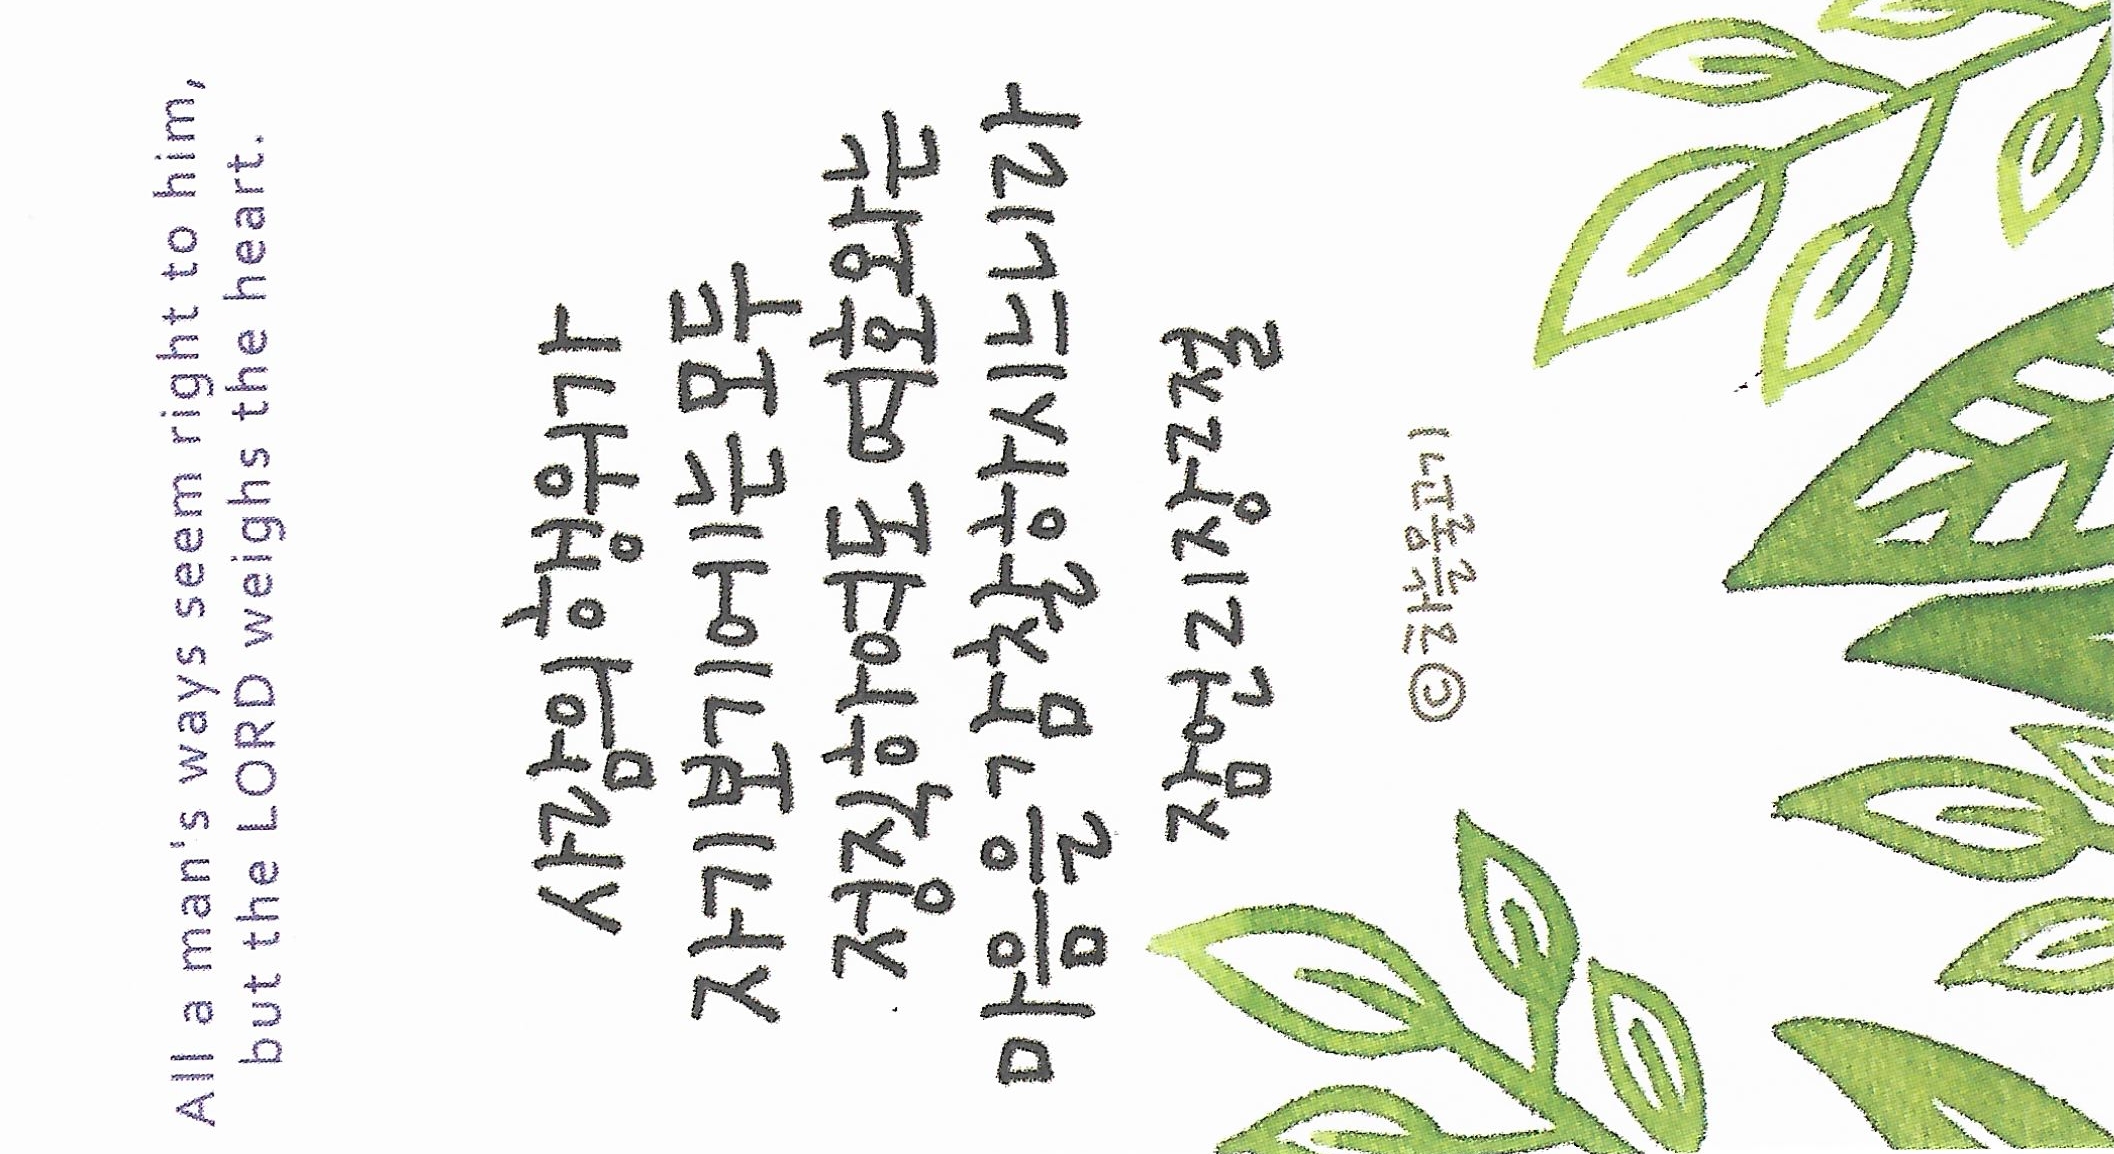 All a man's ways seem right to him,
but the LORD weighs the heart.
사람의 행위가
자기 보기에는 모두
정직하여도 여호와는
마음을 감찰하시느니라
잠언 21장 2절
©하늘물고기